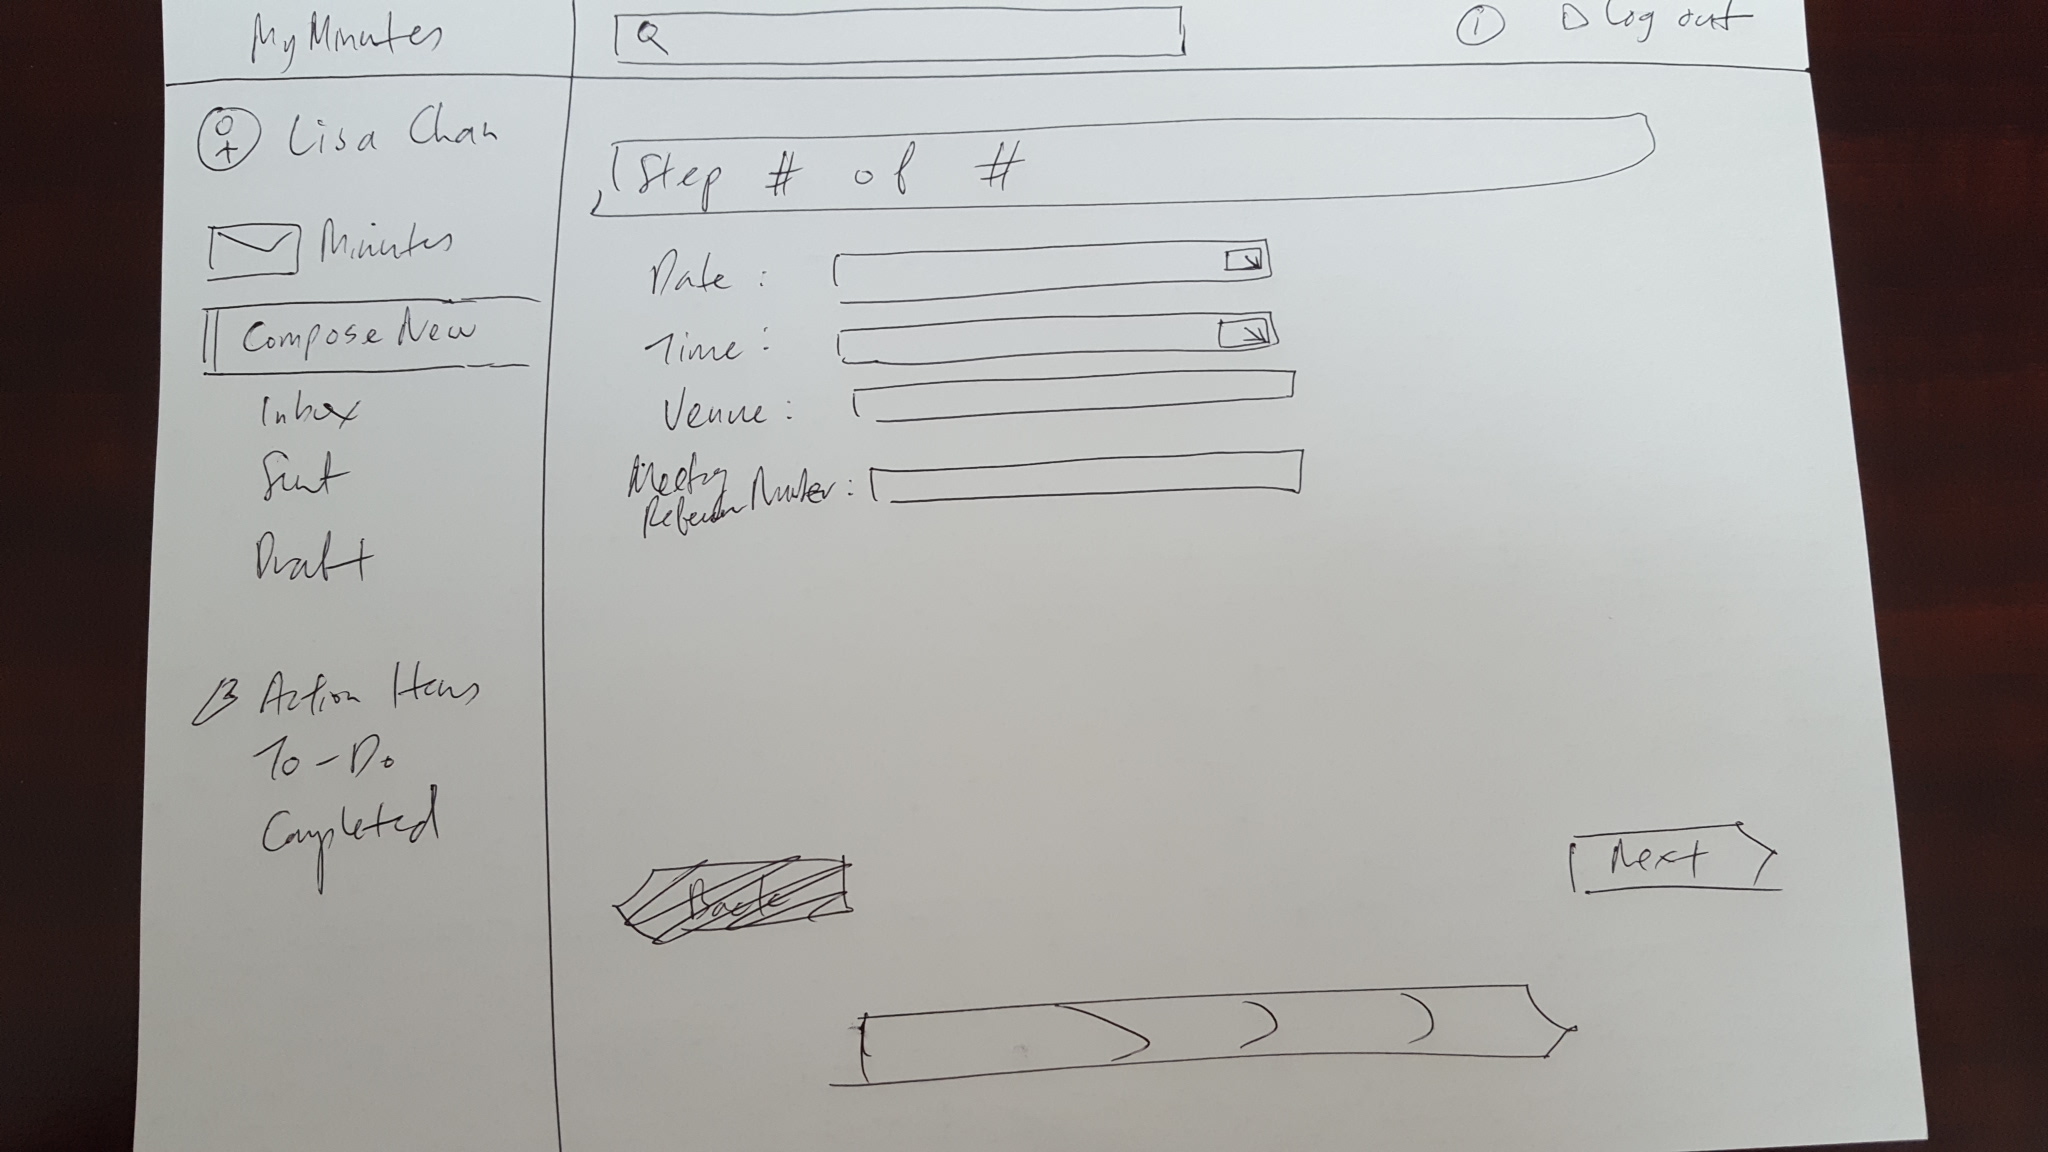 My Minutes
Log out
Lisa Chan
Minutes
Compose New
Inbox
Sent
Draft
Action Items
To-Do
Completed
Step # of #
Date :
Time :
Venue :
Meeting
Reference Number :
Back
Next